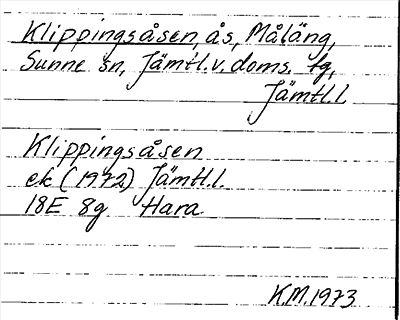 Klippingsåsen, ås, Måläng,
Sunne sn, Jämtl.v.doms. tg,
Jämtl.l.
Klippingsåsen
ek (1972) Jämtl.l.
18E 8g Hara
K.M.1973